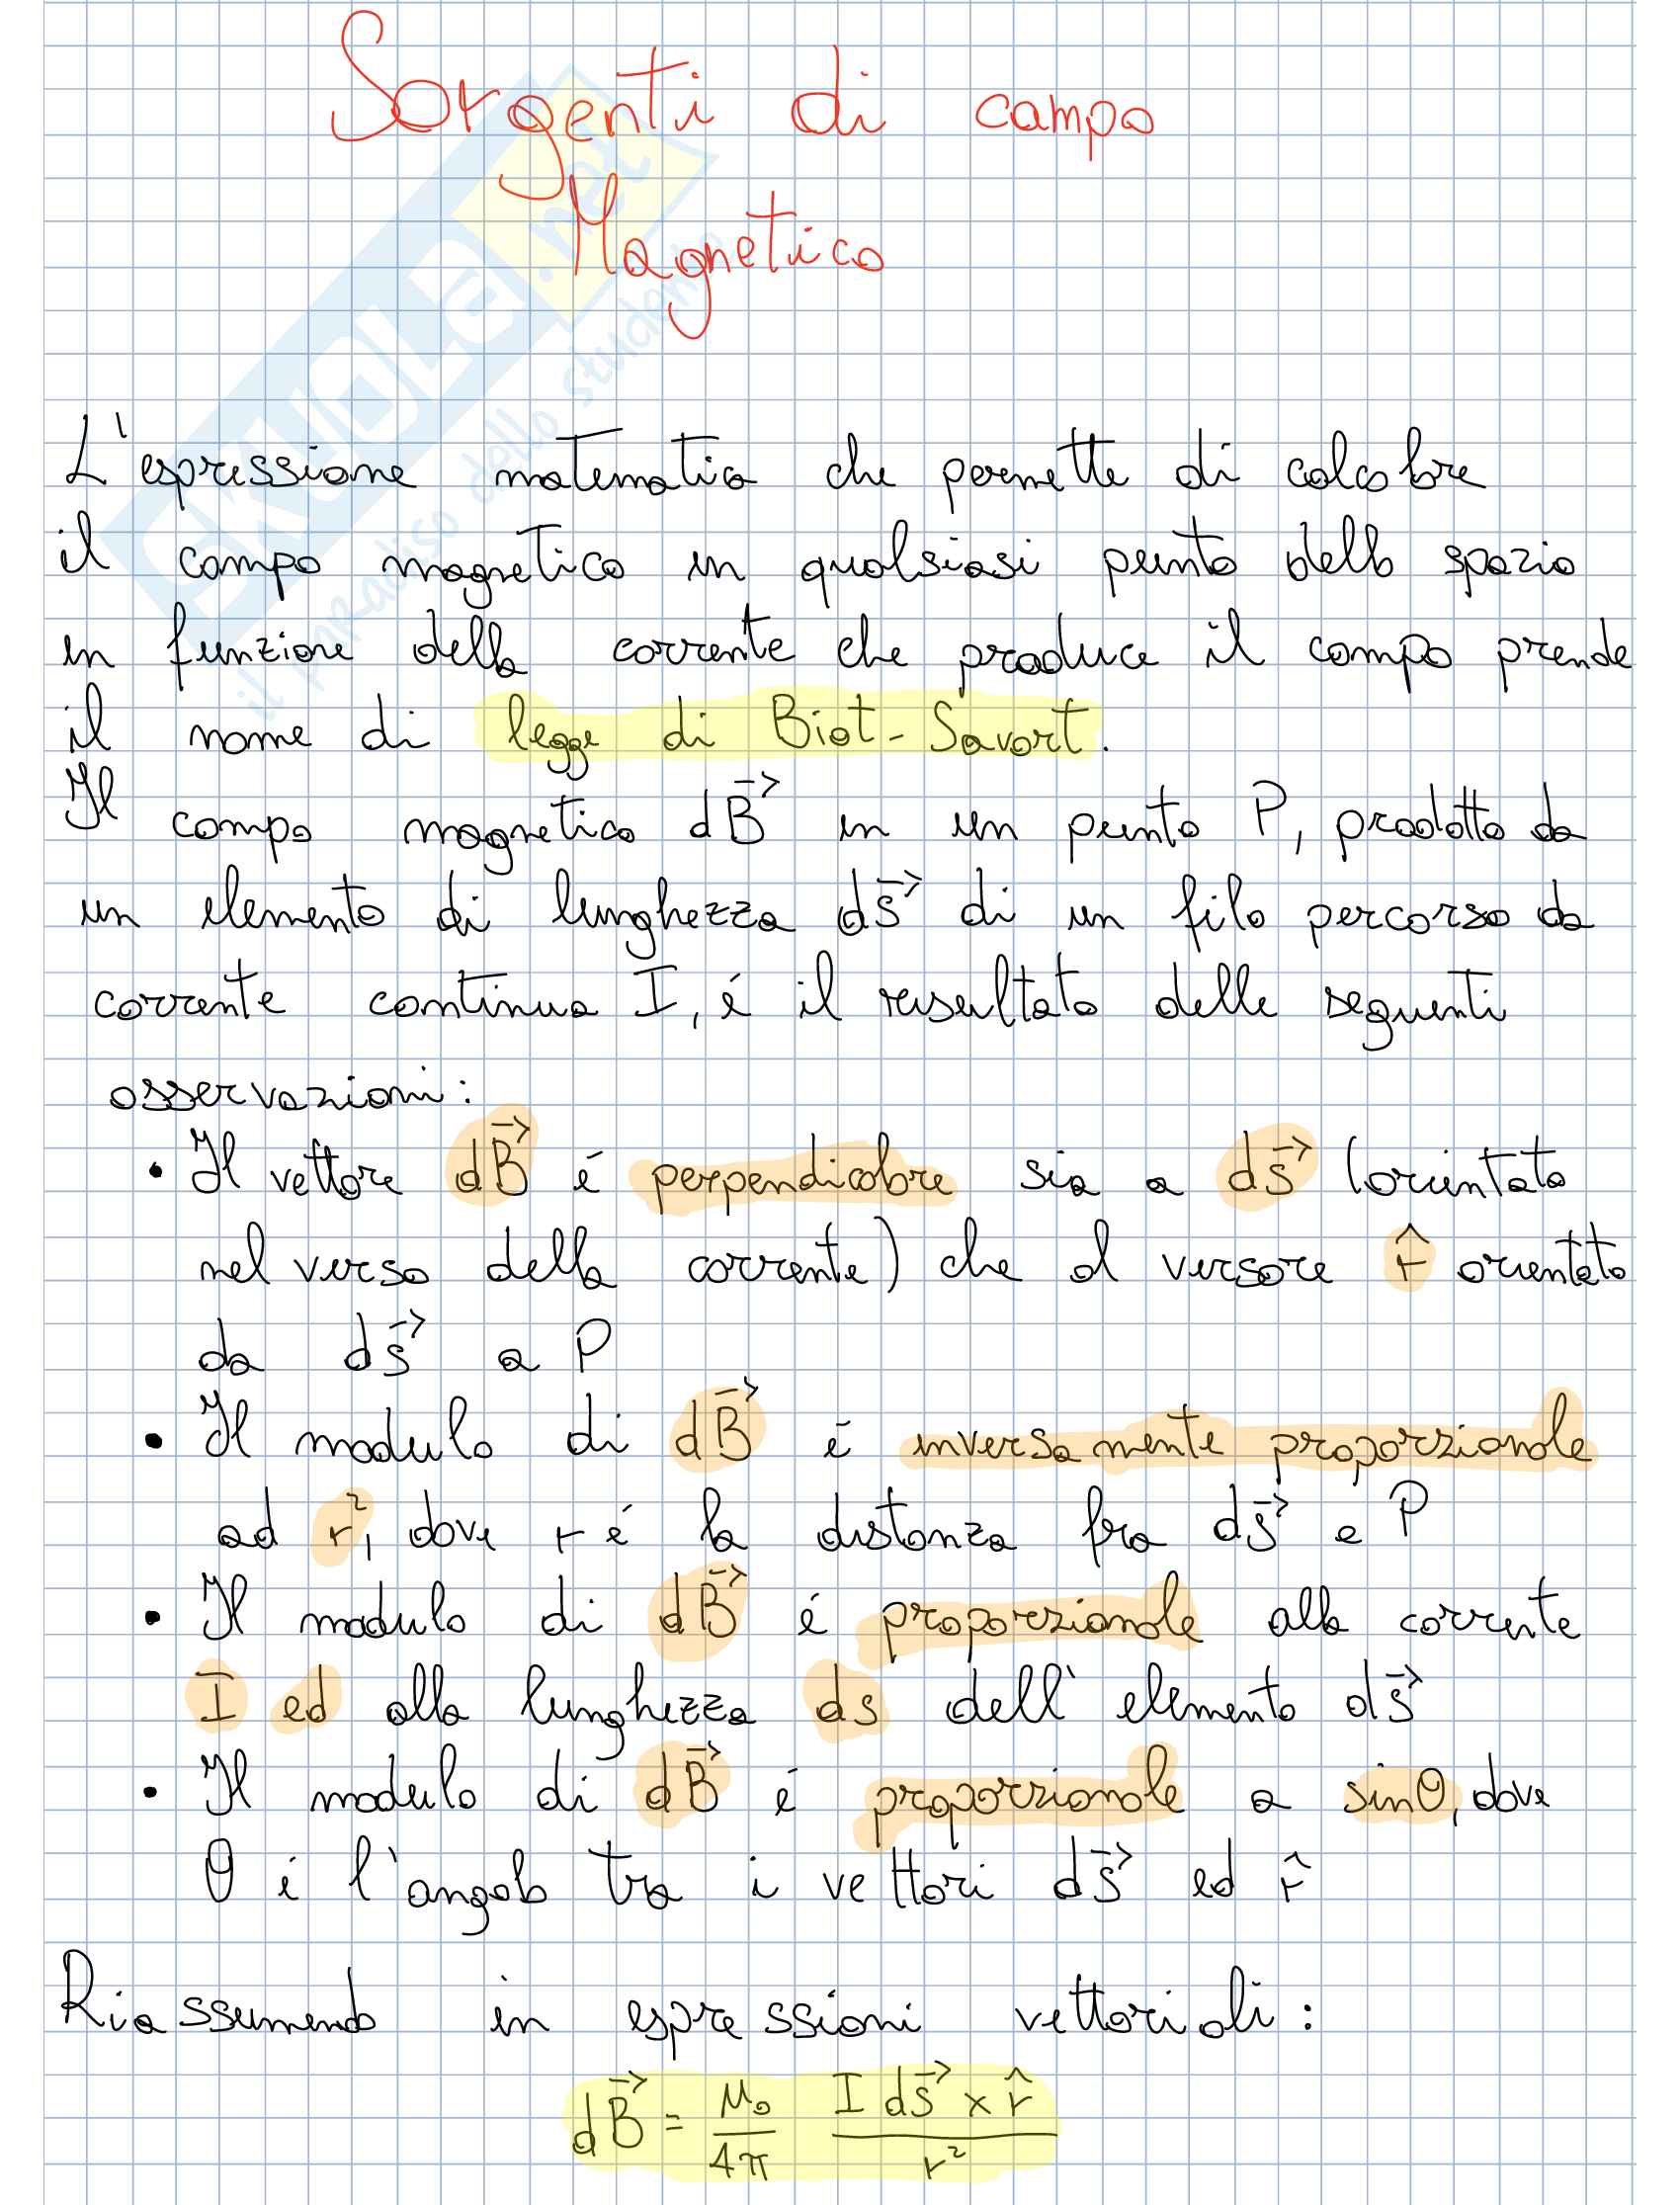 Sorgenti di campo
Magnetico
SKUOLA.net
il paradiso dello studente
L'espressione matematica che permette di calcolare
il campo magnetico in qualsiasi punto dello spazio
in funzione della corrente che produce il campo prende
il nome di legge di Biot-Savart.
Il campo magnetico dB⃗ in un punto P, prodotto da
un elemento di lunghezza ds⃗ di un filo percorso da
corrente continua I, é il risultato delle seguenti
osservazioni:
• Il vettore dB⃗ é perpendicolare sia a ds⃗ (orientato
nel verso della corrente) che al versore r̂ orientato
da ds⃗ a P
• Il modulo di dB⃗ é inversamente proporzionale
ad r², dove r é la distanza fra ds⃗ e P
• Il modulo di dB⃗ é proporzionale alla corrente
I ed alla lunghezza ds dell'elemento ds⃗
• Il modulo di dB⃗ é proporzionale a sinθ, dove
θ é l'angolo tra i vettori ds⃗ ed r̂
Riassumendo in espressioni vettoriali:
dB⃗ = μ₀/4π I ds⃗ × r̂ / r²